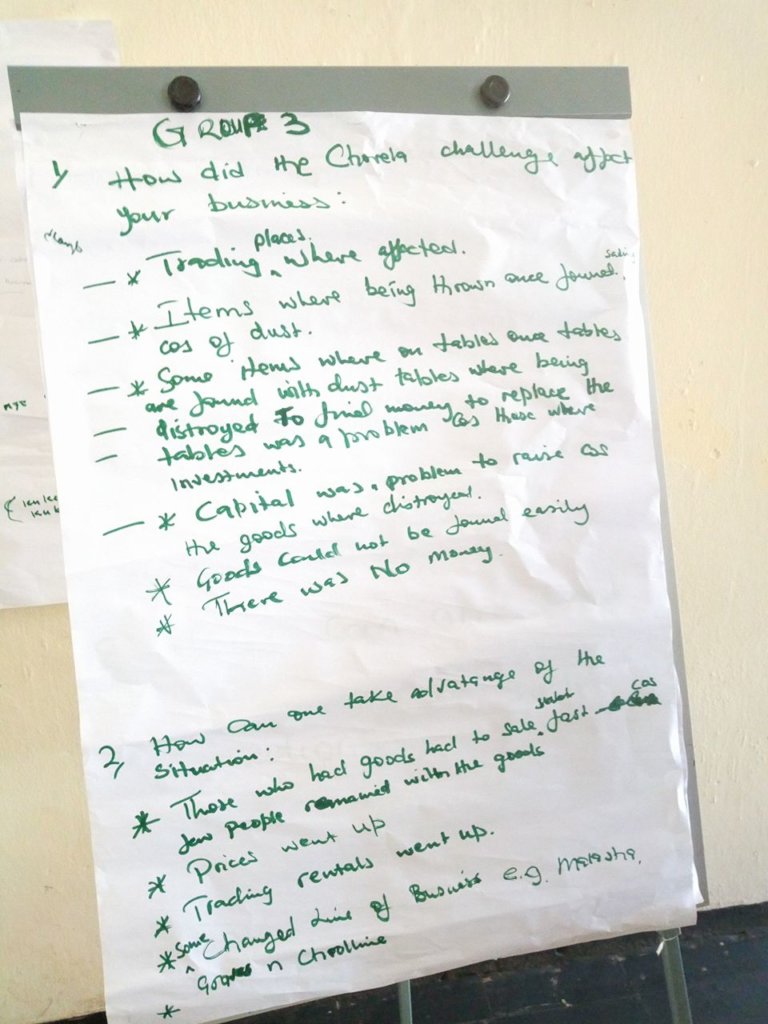 GROUP 3
1, How did the Chorela challenge affect
your business:
— * Trading places. where affected.
— * Items where being thrown once found
cos of dust.
— * Some items where on tables once tables
are found with dust tables where being
— distroyed To find money to replace the
— tables was a problem cos those where
investments.
— * Capital was a problem to raise cos
the goods where distroyed.
* Goods could not be found easily
* There was No money.
2, How can one take advatange of the
situation:
* Those who had goods had to sale fast cos
few people remained with the goods
* Prices went up
* Trading rentals went up.
* Some Changed Line of Business e.g.
n Chrolline
*